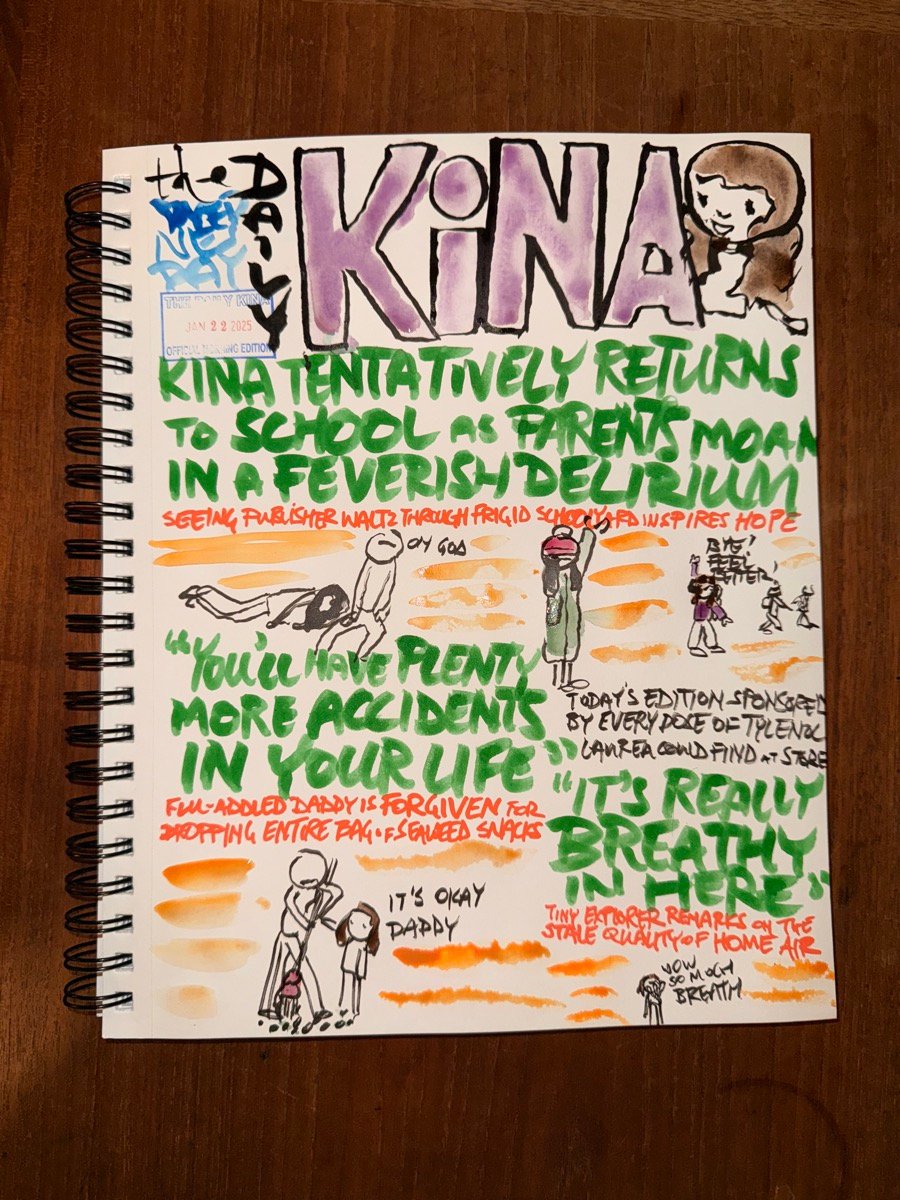 the DAILY KiNA
THE DAILY KINA
JAN 22 2025
OFFICIAL MORNING EDITION
KINA TENTATIVELY RETURNS
TO SCHOOL AS PARENTS MOAN
IN A FEVERISH DELIRIUM
SEEING PUBLISHER WALTZ THROUGH FRIGID SCHOOLYARD INSPIRES HOPE
OH GOD
BYE!
FEEL
BETTER!
"YOU'LL HAVE PLENTY
MORE ACCIDENTS
IN YOUR LIFE"
FLU-ADDLED DADDY IS FORGIVEN FOR
DROPPING ENTIRE BAG OF SEAWEED SNACKS
IT'S OKAY
DADDY
TODAY'S EDITION SPONSORED
BY EVERY DOSE OF TYLENOL
LAUREA COULD FIND AT STORE
"IT'S REALLY
BREATHY
IN HERE"
TINY EXPLORER REMARKS ON THE
STALE QUALITY OF HOME AIR
WOW
SO MUCH
BREATH